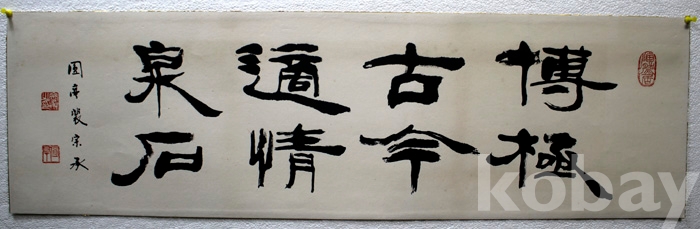 博極
古今
適情
泉石
裴宗承
kobay